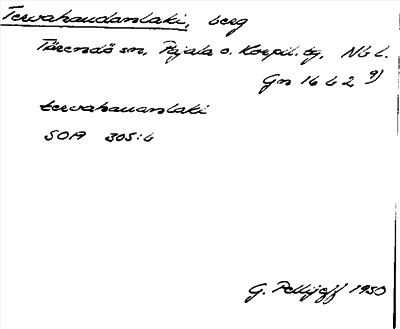 Tervahaudanlaki, berg
Tärendö sn, Pajala o. Korpil. tg. Nb l.
Gn 16 b 2 g)
tervahauanlaki
SOA 305:6
G. Pellijeff 1950